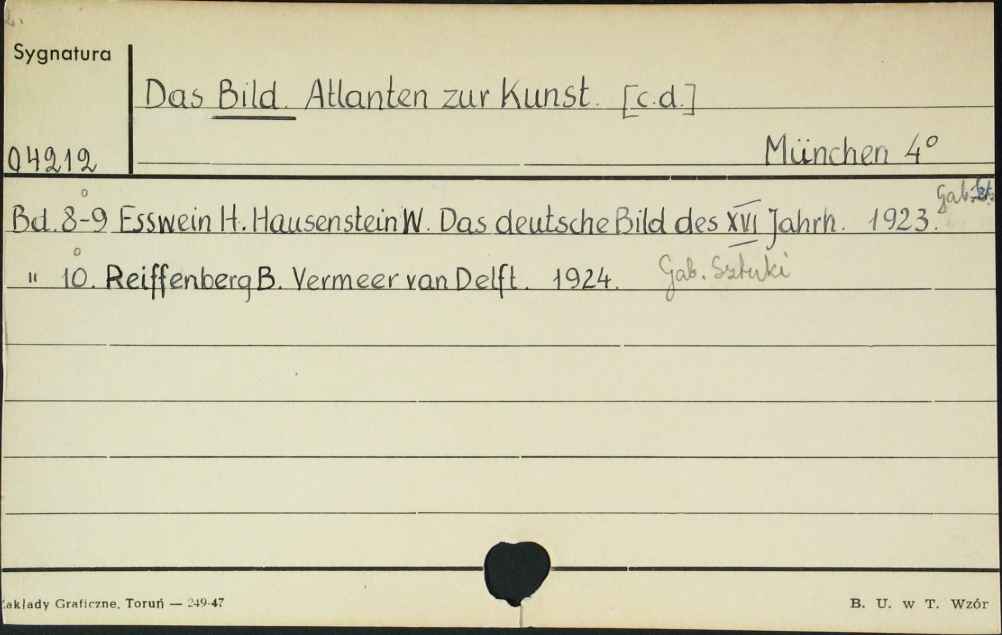 Sygnatura
Das Bild. Atlanten zur Kunst. [c.d.]
04212
München 4°
Bd. 8-9 Esswein H. Hausenstein W. Das deutsche Bild des XVI Jahrh. 1923. Gab.
" 10. Reiffenberg B. Vermeer van Delft. 1924. Gab. Sztuki
Zakłady Graficzne, Toruń — 249-47
B. U. w T. Wzór